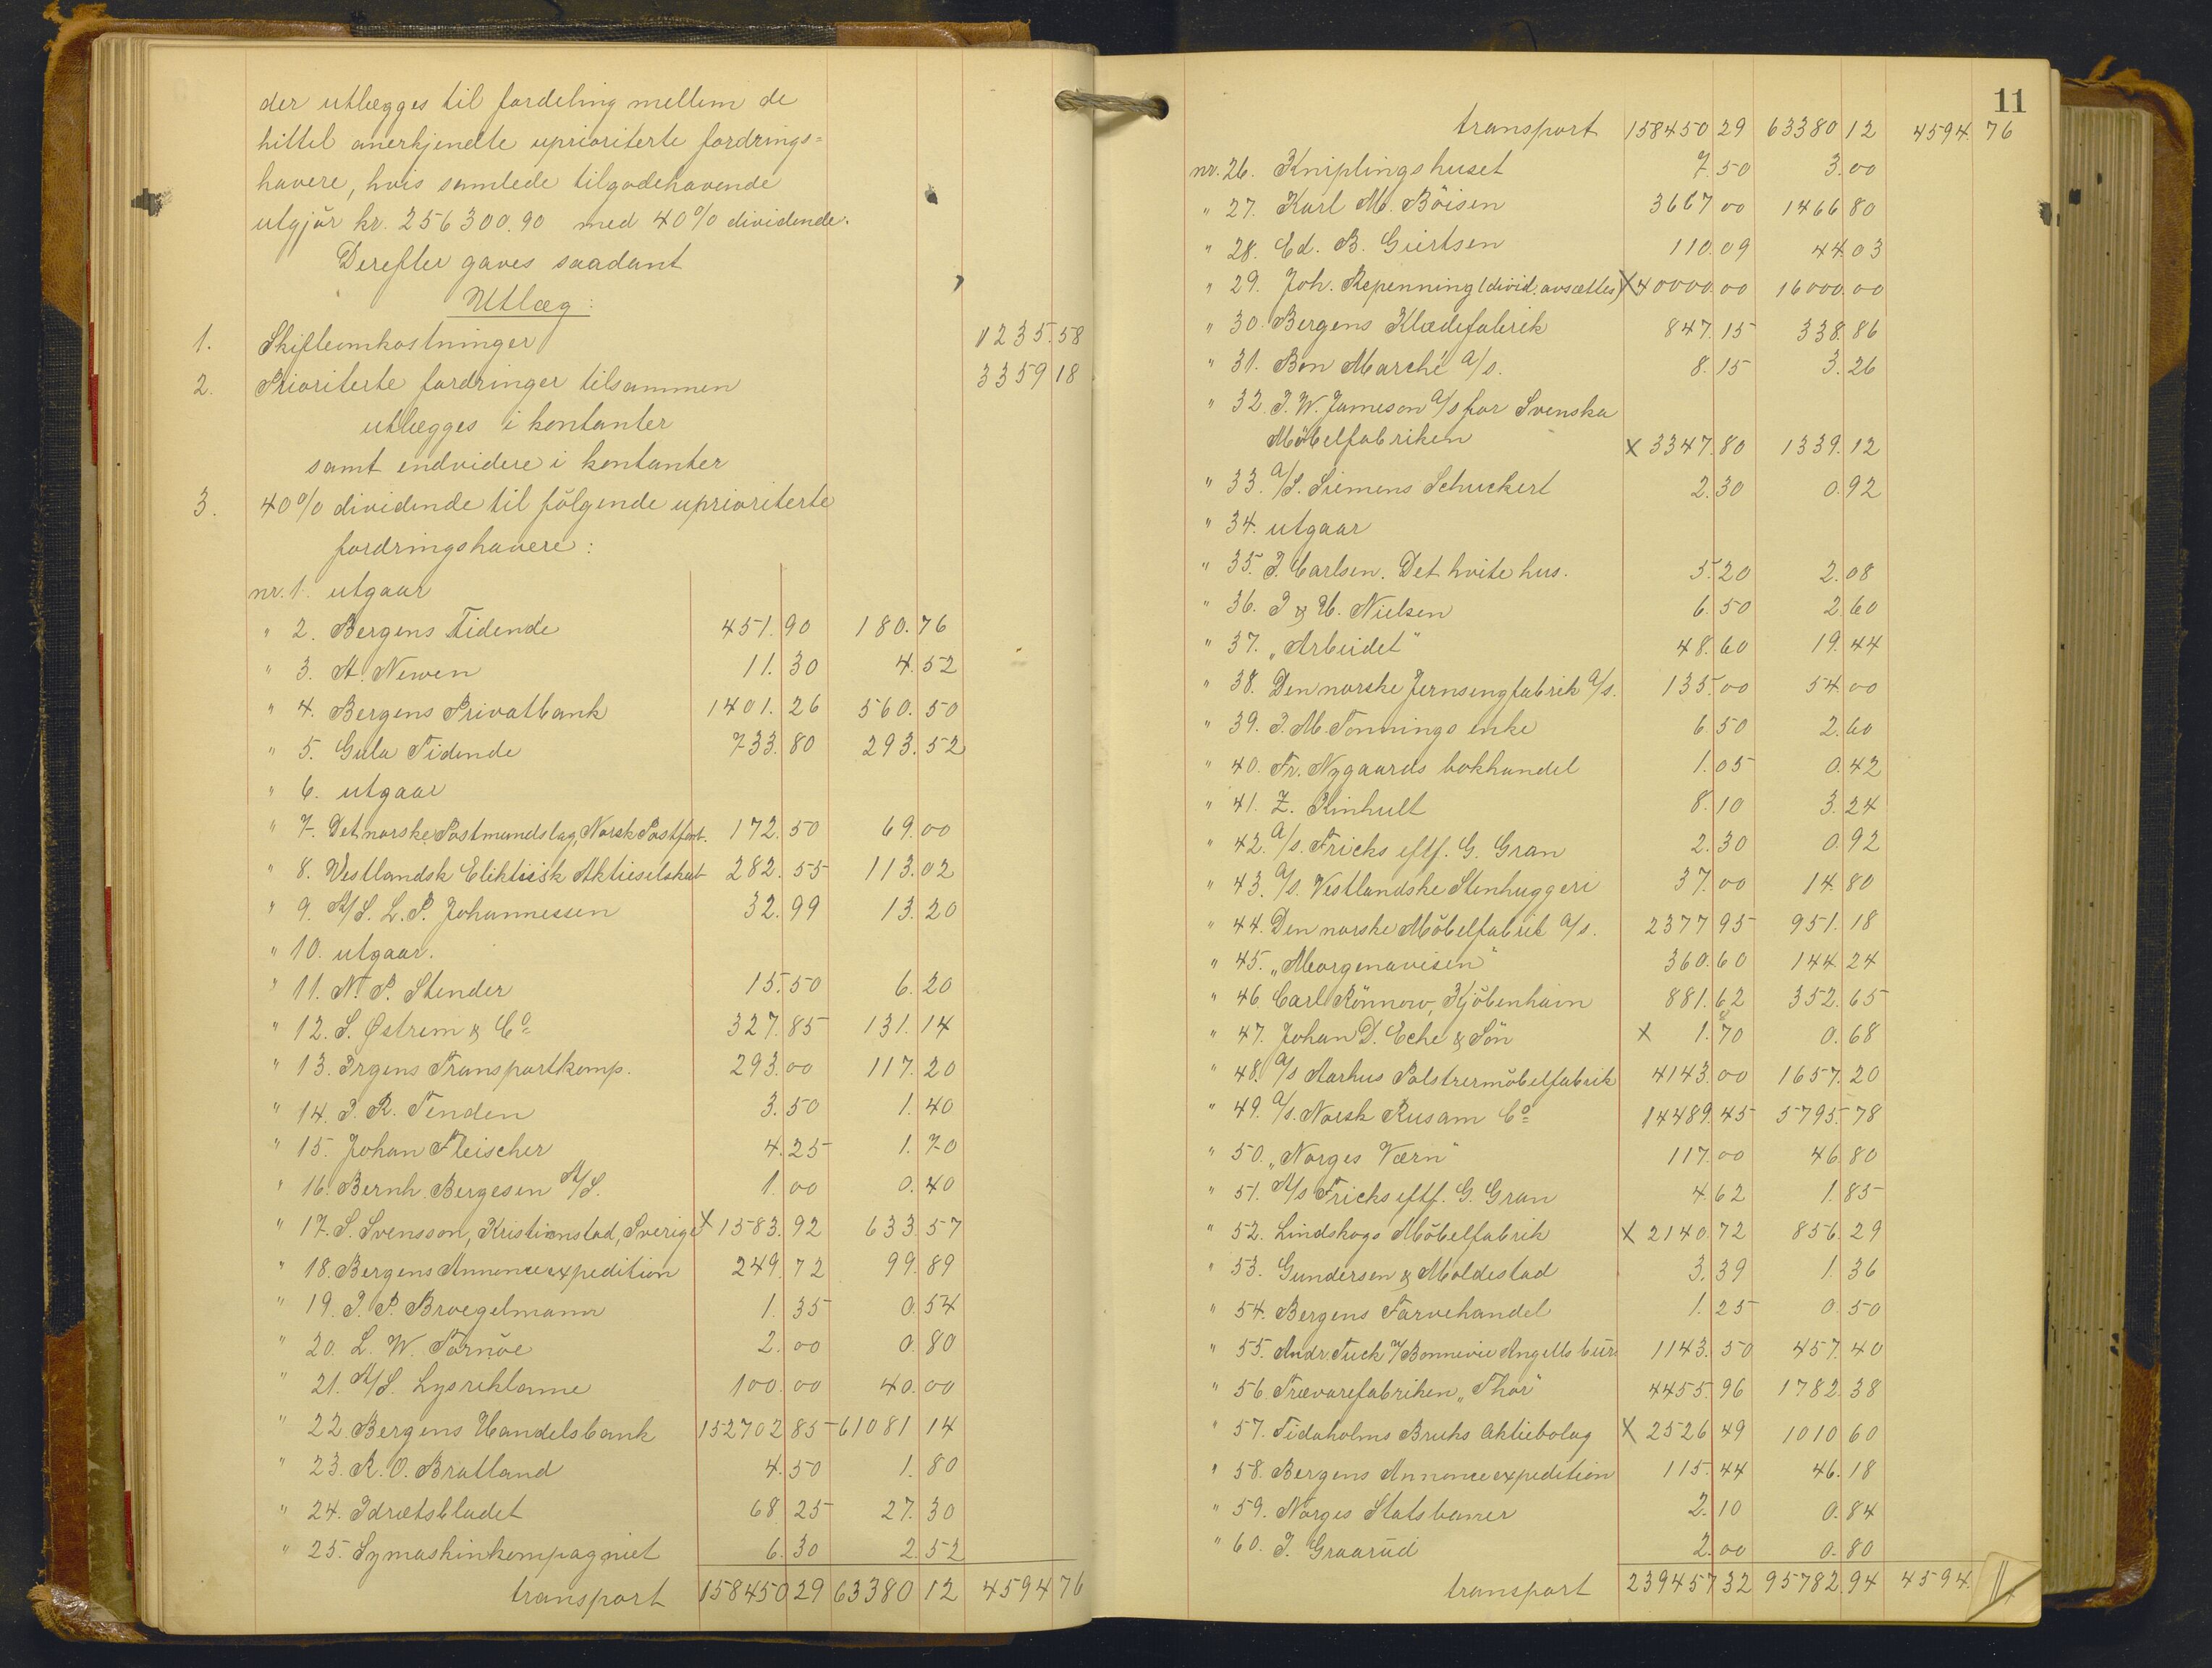 der utlægges til fordeling mellem de
hittil anerkjendte uprioriterte fordrings=
havere, hvis samlede tilgodehavende
utgjör kr. 256300.90 med 40% dividende.
Derefter gaves saadant
Utlæg:
1. Skifteomkostninger 1235.58
2. Prioriterte fordringer tilsammen 3359 18
utlægges i kontanter
samt endvidere i kontanter
3. 40% dividende til följgende uprioriterte
fordringshavere:
nr. 1. utgaar
" 2. Bergens Tidende 451.90 180.76
" 3. A. Newen 11.30 4.52
" 4. Bergens Privatbank 1401.26 560.50
" 5. Gula Tidende 733.80 293.52
" 6. utgaar
" 7. Det norske Postmandslag, Norsk Postfort. 172.50 69.00
" 8. Vestlandsk Elektrisk Aktieselskab 282.55 113.02
" 9. A/S. L. P. Johannessen 32.99 13.20
" 10. utgaar.
" 11. N. P. Stender 15.50 6.20
" 12. S. Østrem & Co 327.85 131.14
" 13. Irgens Transportkomp. 293.00 117.20
" 14. I. R. Tenden 3.50 1.40
" 15. Johan Fleischer 4.25 1.70
" 16. Bernh. Bergesen A/S. 1.00 0.40
" 17. S. Svensson, Kristianstad, Sverige X 1583.92 633.57
" 18. Bergens Annonceexpedition 249.72 99.89
" 19. I. P. Broegelmann 1.35 0.54
" 20. L. W. Tornöe 2.00 0.80
" 21. A/S. Lysreklame 100.00 40.00
" 22. Bergens Handelsbank 152702 85 61081 14
" 23. R. O. Bratland 4.50 1.80
" 24. Idrætsbladet 68.25 27.30
" 25. Symaskinkompagniet 6.30 2.52
transport 158450 29 63380 12 4594 76
11
transport 158450 29 63380 12 4594. 76
nr. 26. Kniplingshuset 7.50 3.00
" 27. Karl M. Böisen 3667 00 1466 80
" 28. Ed. B. Giertsen 110.09 44.03
" 29. Joh. Repenning (divid. avsættes) X 40000.00 16000.00
" 30. Bergens Klædefabrik 847.15 338.86
" 31. Bon Marché a/s. 8.15 3.26
" 32. I. W. Jameson a/s for Svenska
Möbelfabriken X 3347.80 1339.12
" 33. a/S. Siemens Schuckert 2.30 0.92
" 34. utgaar
" 35. I. Carlsen. Det hvite hus. 5.20 2.08
" 36. I & H. Nielsen 6.50 2.60
" 37. „Arbeidet" 48.60 19.44
" 38. Den norske Jernsengfabrik a/s. 135.00 54.00
" 39. I. M. Tonnings enke 6.50 2.60
" 40. Fr. Nygaards bokhandel 1.05 0.42
" 41. Z. Rinhult 8.10 3.24
" 42. a/s. Fricks eftf. G. Gran 2.30 0.92
" 43. a/s. Vestlandske Stenhuggeri 37.00 14.80
" 44. Den norske Möbelfabrik a/s. 2377 95 951.18
" 45. „Morgenavisen" 360.60 144.24
" 46 Carl Rönnow, Kjöbenhavn 881.62 352.65
" 47. Johan D. Eche & Sön X 1.70 0.68
" 48. a/s Aarhus Polstrermöbelfabrik 4143.00 1657.20
" 49. a/s. Norsk Rusam Co 14489.45 5795.78
" 50. „Norges Værn" 117.00 46.80
" 51. A/s Fricks eftf. G. Gran 4.62 1.85
" 52. Lindskogs Möbelfabrik X 2140.72 856.29
" 53. Gundersen & Moldestad 3.39 1.36
" 54. Bergens Farvehandel 1.25 0.50
" 55. Andr. Tuck v/ Bonnevie Angells bür. 1143.50 457.40
" 56. Trævarefabriken „Thor" 4455.96 1782.38
" 57. Tidaholms Bruks Aktiebolag X 2526 49 1010 60
" 58. Bergens Annonceexpedition 115.44 46.18
" 59. Norges Statsbaner 2.10 0.84
" 60. I. Graarüd 2.00 0.80
transport 239457 32 95782.94 4594.
11